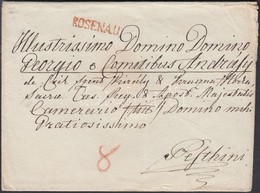 ROSENAU
Illustrissimo Domino Domino
Georgio e Comitibus Andrásy
de Csik Szent Király &
Sacrae Caes. Reg. & Apost. Majestatis
Camerario Domino mihi
Gratiosissimo
8
Pesthini